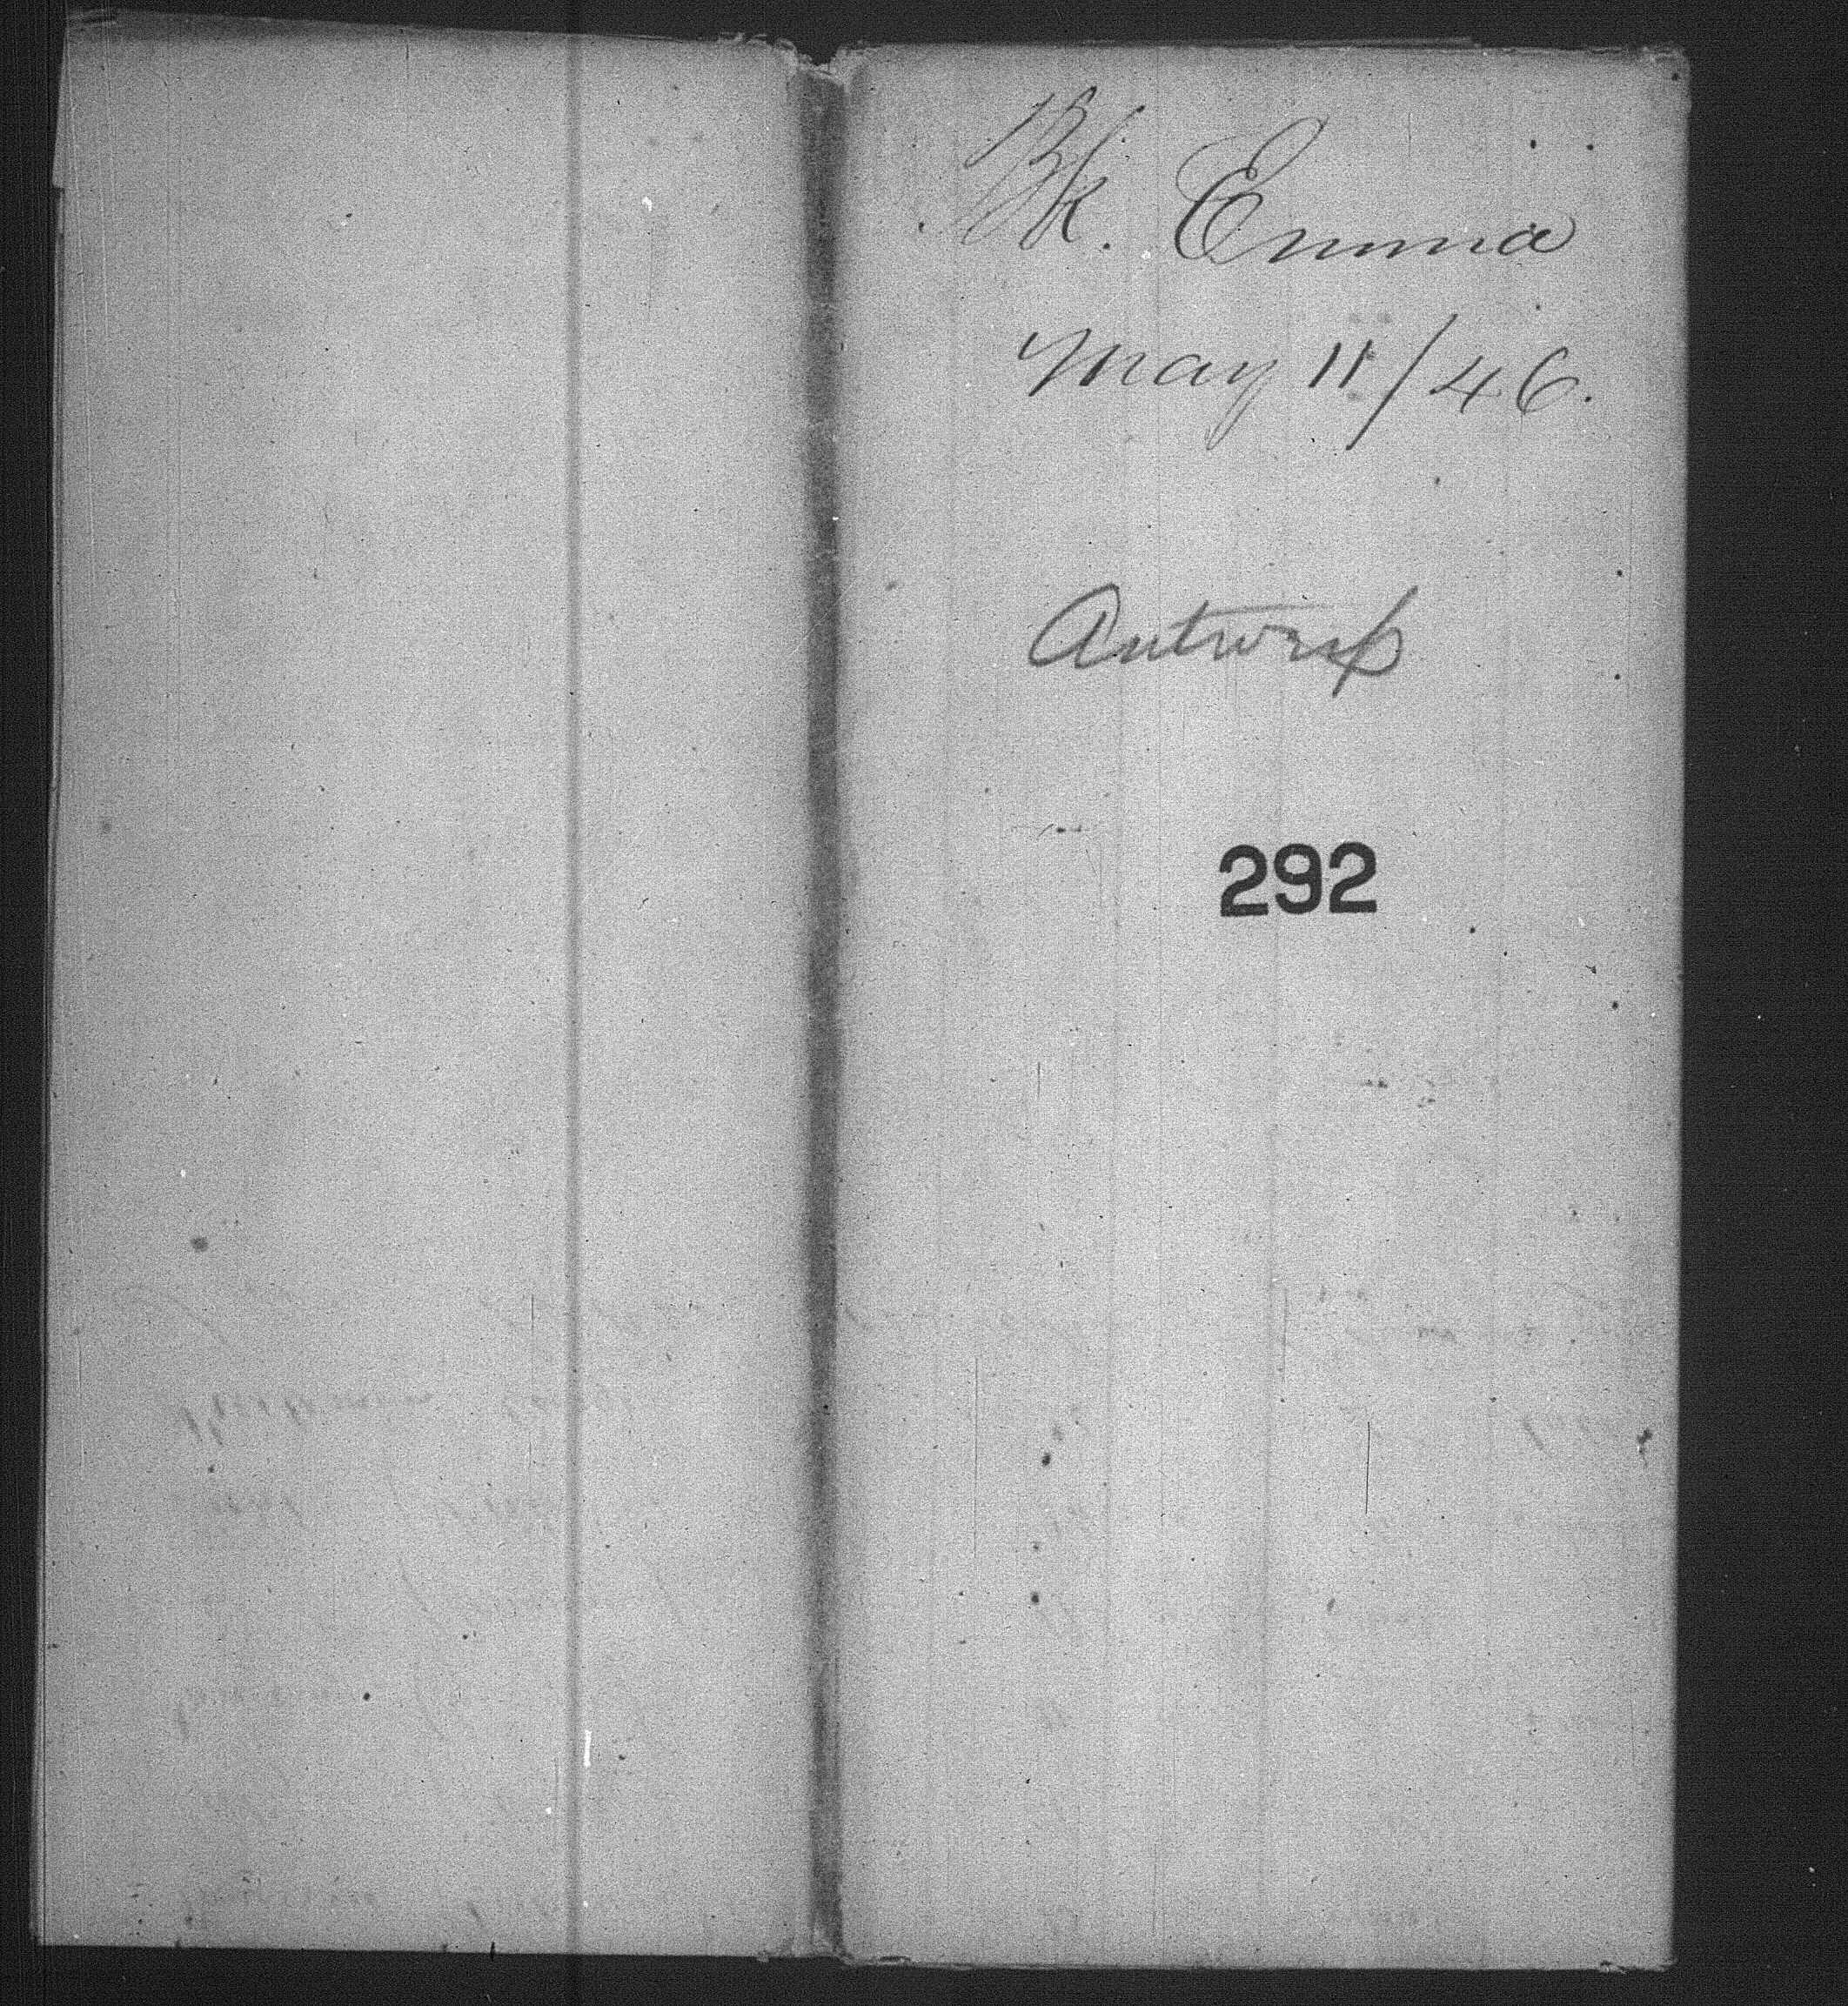 Bk. Emma
May 11/46.
Antwerp
292